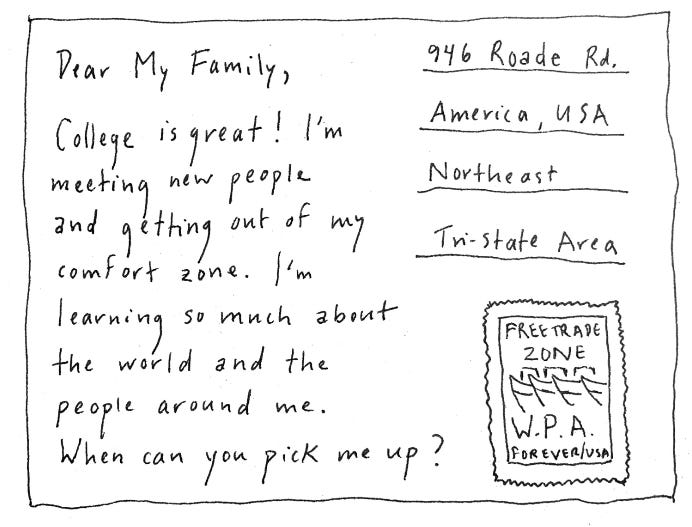 Dear My Family,
College is great! I'm
meeting new people
and getting out of my
comfort zone. I'm
learning so much about
the world and the
people around me.
When can you pick me up?
946 Roade Rd.
America, USA
Northeast
Tri-state Area
FREE TRADE
ZONE
W.P.A.
FOREVER/USA